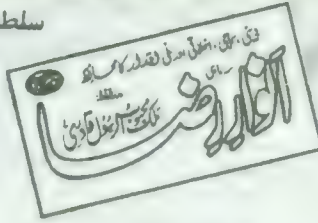 سلط
دینی، ملی، اخلاقی اور فنی اقدار کا محافظ
سہ ماہی
انوار رضا
ملک محبوب الرسول قادری